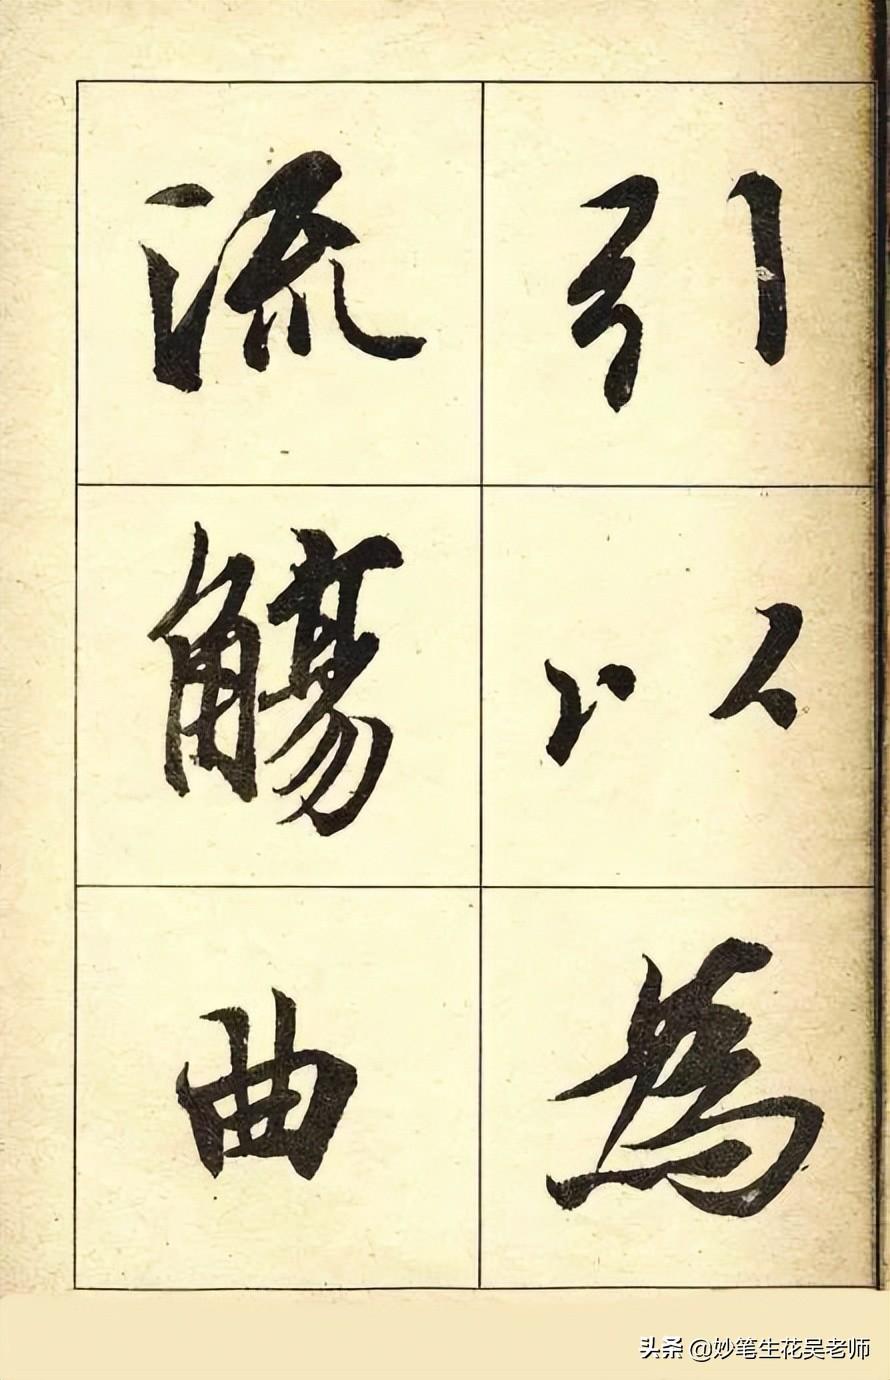 引以為
流觴曲
头条 @妙笔生花吴老师